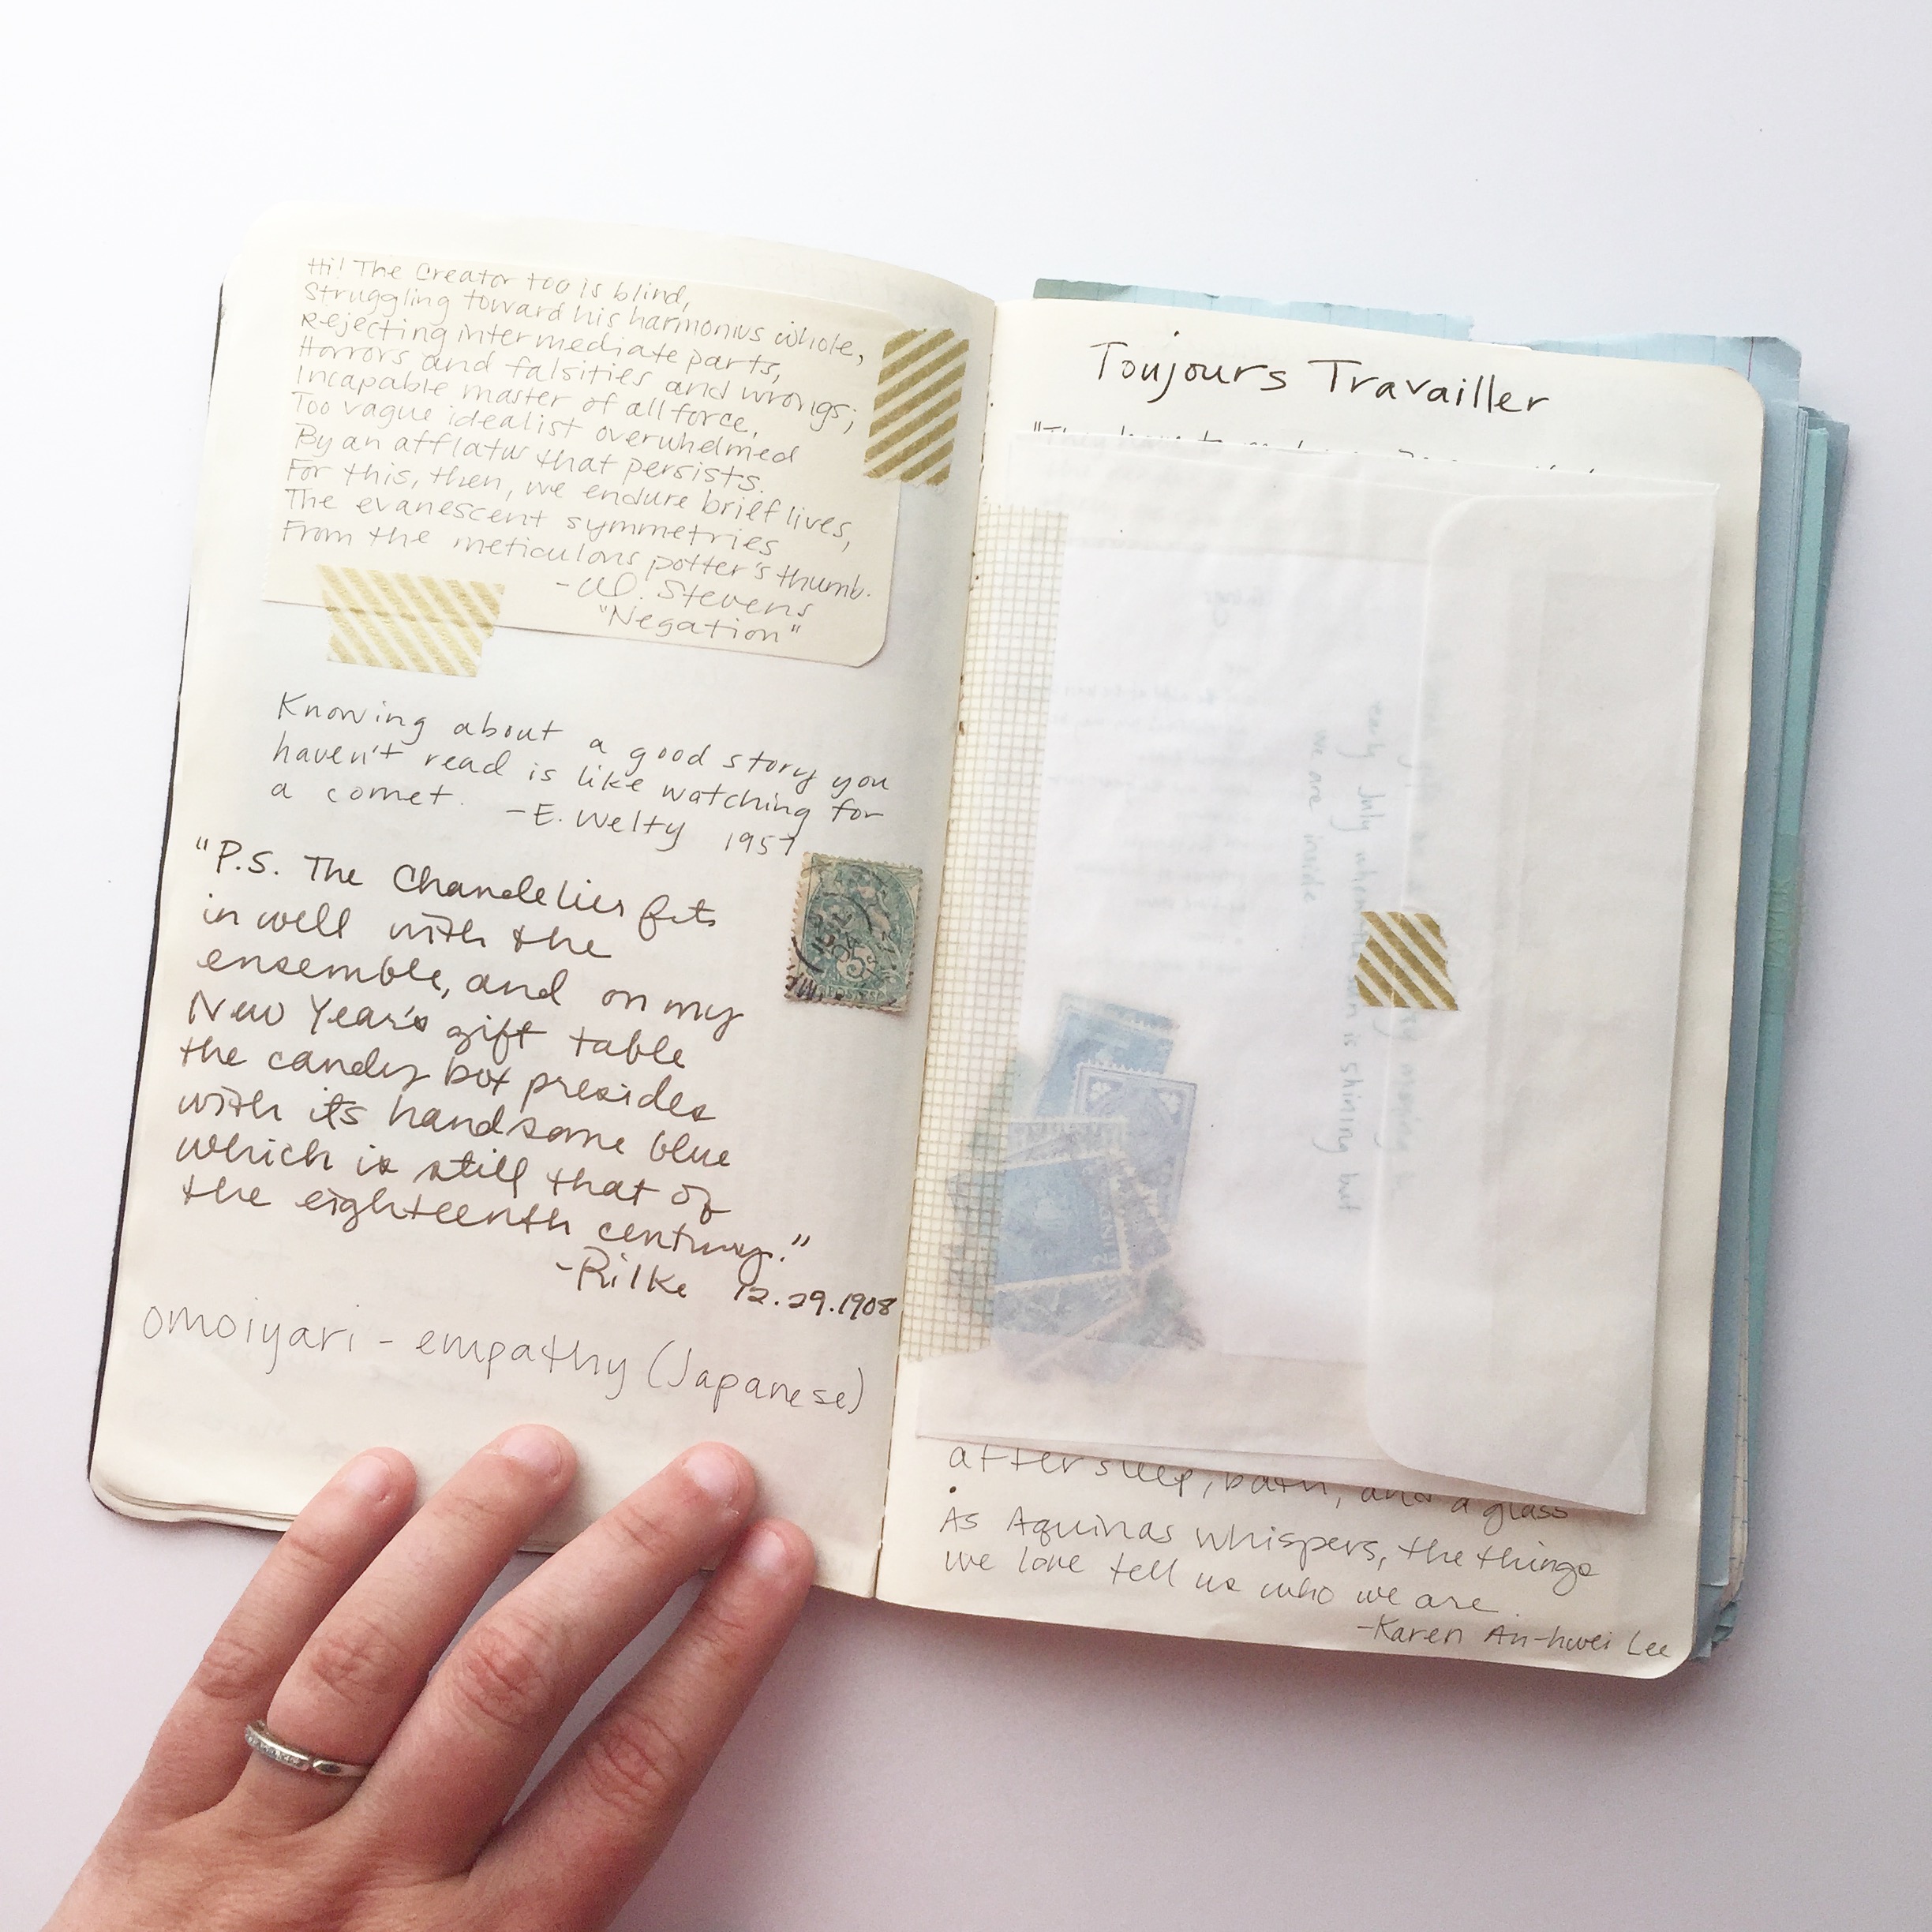 Hi! The Creator too is blind,
Struggling toward his harmonius whole,
Rejecting intermediate parts,
Horrors and falsities and wrongs;
Incapable master of all force,
Too vague idealist overwhelmed
By an afflatus that persists.
For this, then, we endure brief lives,
The evanescent symmetries
From the meticulous potter's thumb.
-W. Stevens
"Negation"
Knowing about a good story you
haven't read is like watching for
a comet. -E. Welty 1957
"P.S. The Chandelier fits
in well with the
ensemble, and on my
New Year's gift table
the candy box presides
with its handsome blue
which is still that of
the eighteenth century."
-Rilke 12.29.1908
omoiyari - empathy (Japanese)
Toujours Travailler
"They have to
early July when the sun is shining but
we are inside
after sleep, bath, and a glass
As Aquinas whispers, the things
we love tell us who we are.
-Karen An-hwei Lee